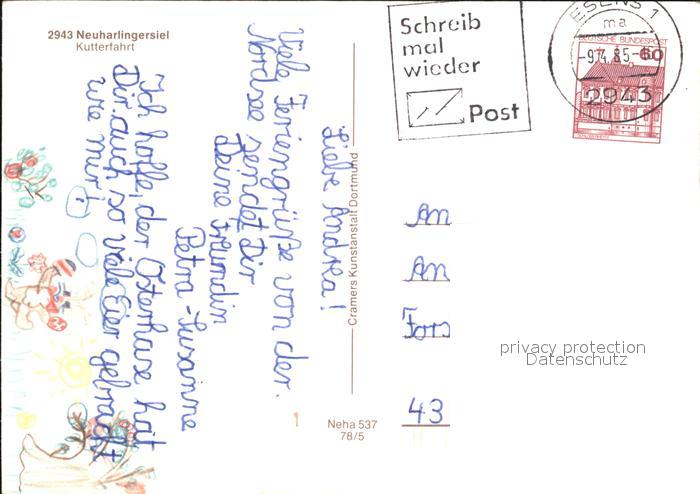 2943 Neuharlingersiel
Kutterfahrt
Liebe Andrea!
Viele Feriengrüße von der
Nordsee sendet Dir
Deine Freundin
Petra-Susanne
Ich hoffe, der Osterhase hat
Dir auch so viele Eier gebracht
wie mir!
Cramers Kunstanstalt Dortmund
Neha 537
78/5
Schreib
mal
wieder
Post
ESENS 1
ma
-9.4.85-
2943
DEUTSCHE BUNDESPOST
60
An
An
43
privacy protection
Datenschutz